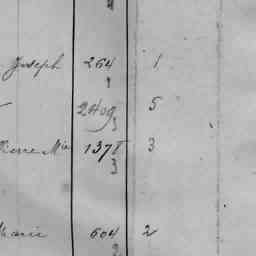 4
Joseph 264 1
1
2409 5
3
Pierre Mie 1378 3
3
Marie 604 2
2